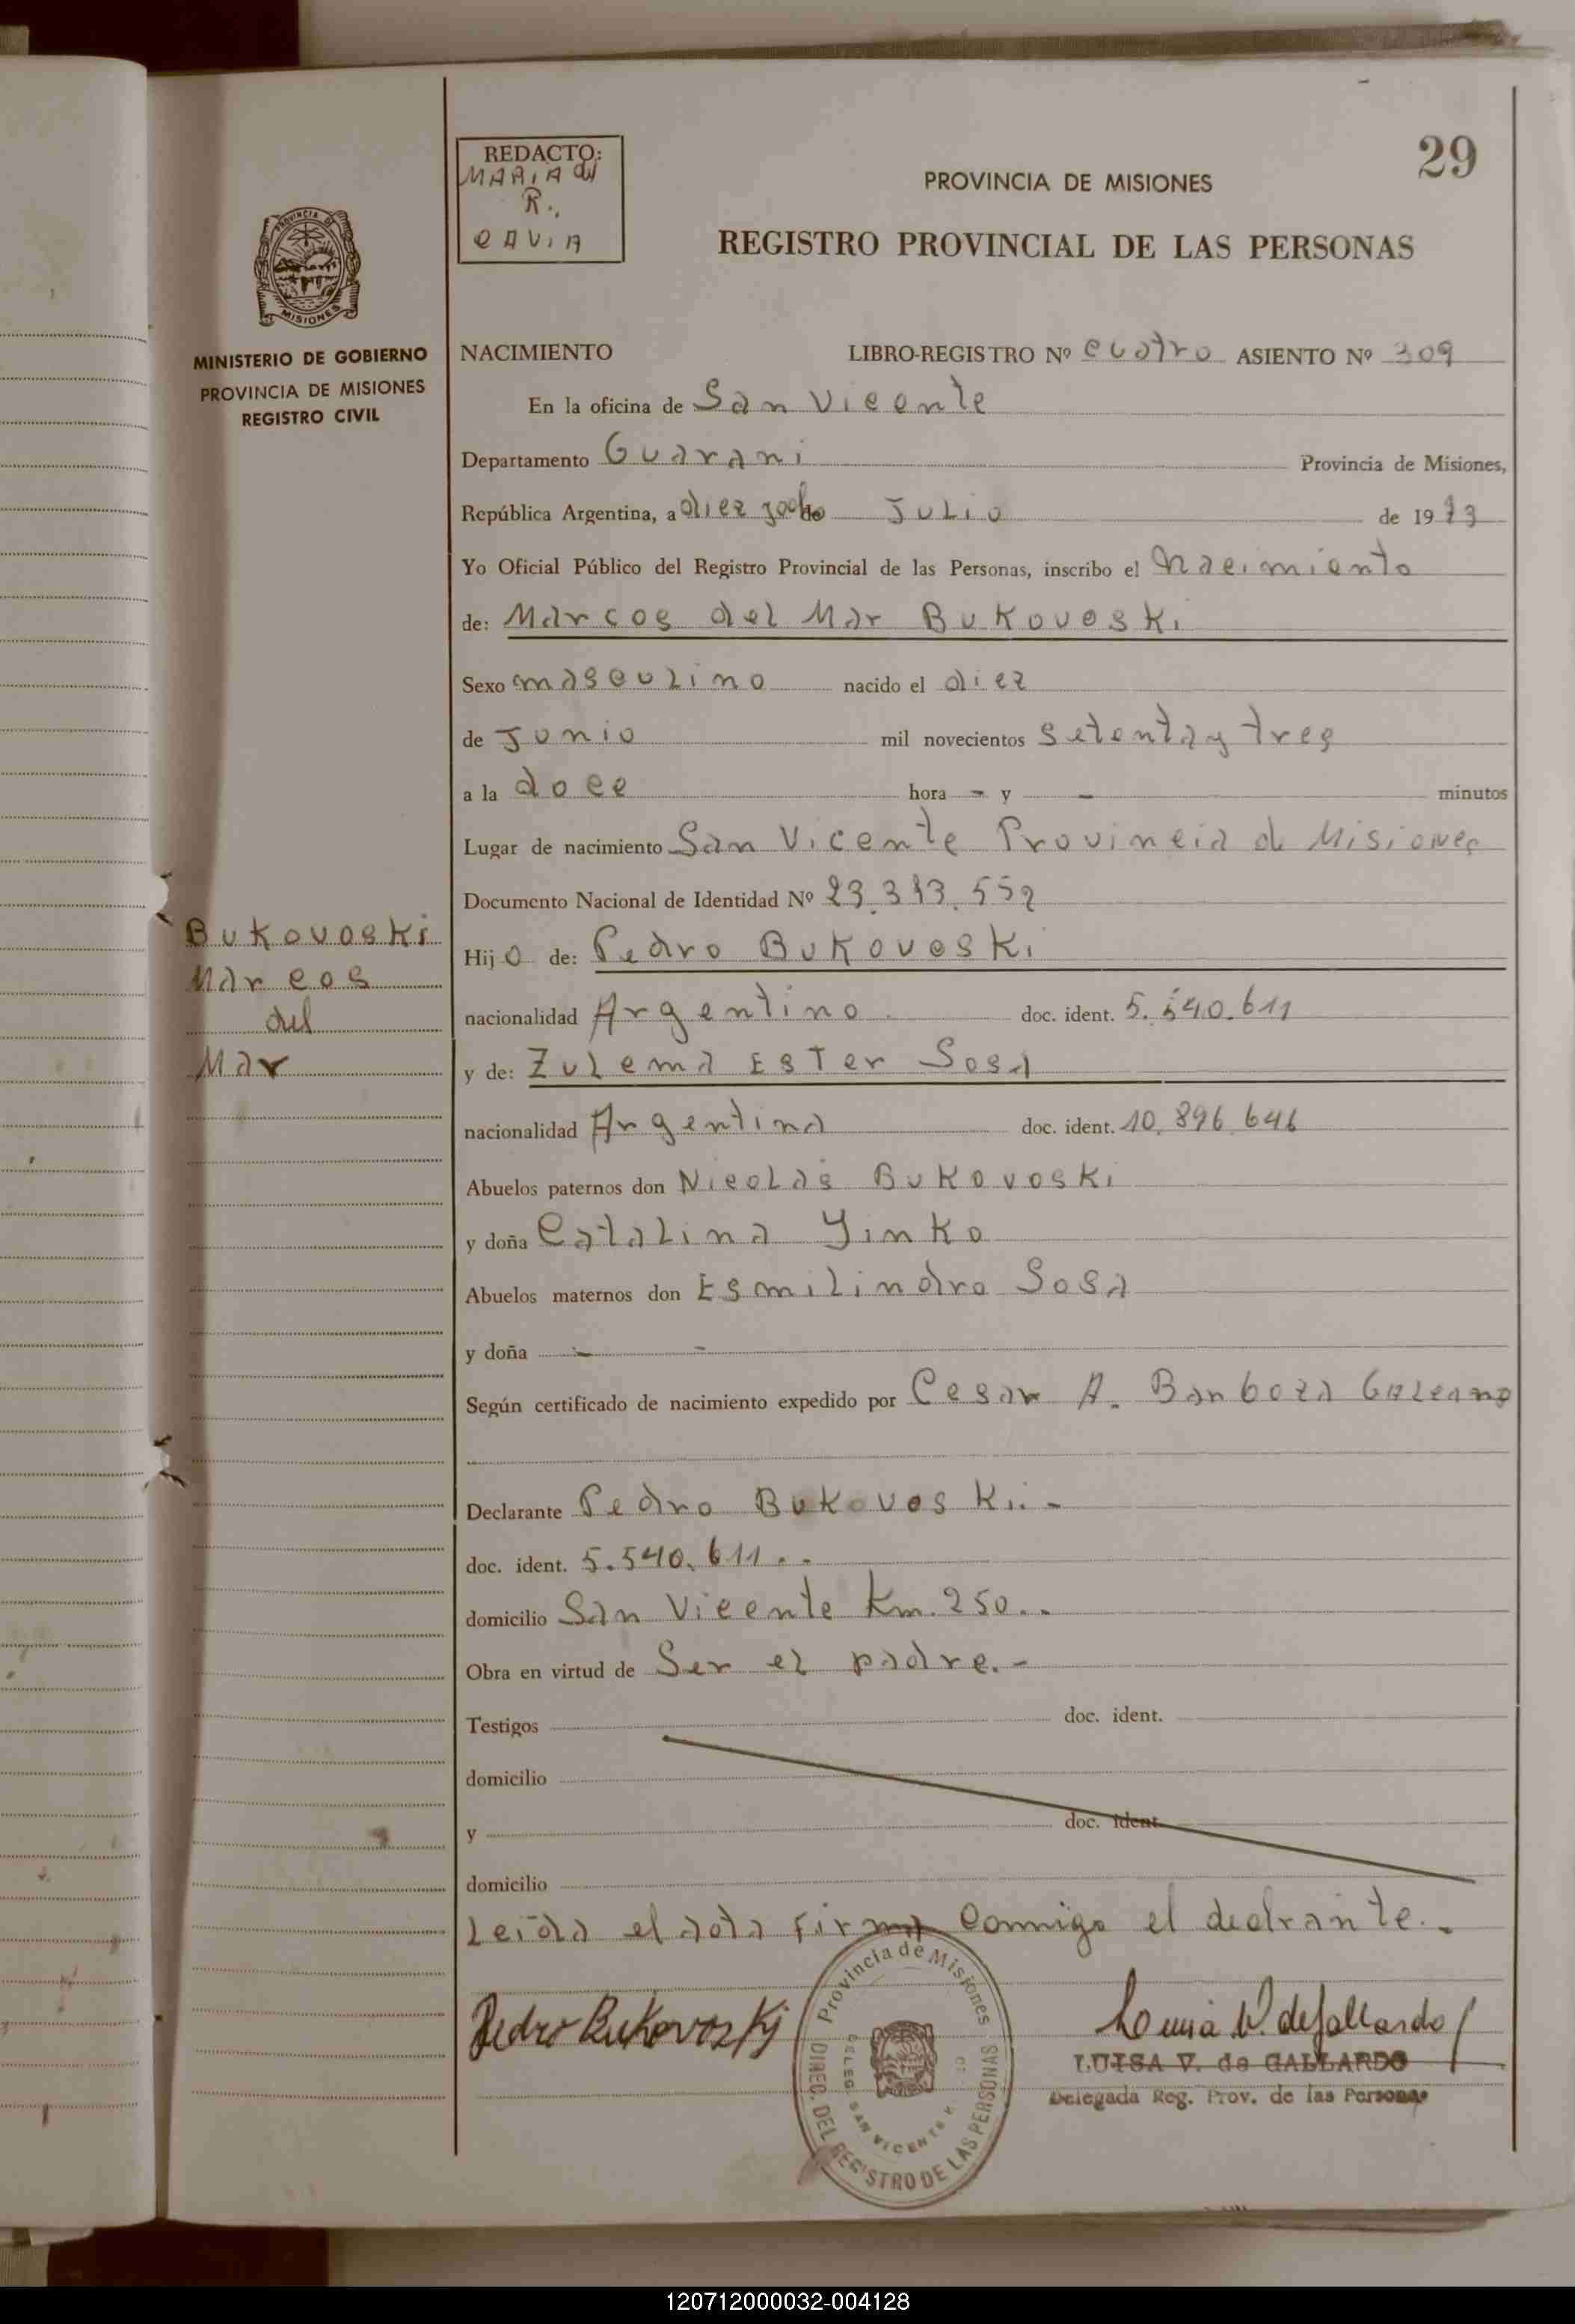 29
REDACTO:
MARIA del
R.,
CAVIA
PROVINCIA DE MISIONES
REGISTRO PROVINCIAL DE LAS PERSONAS
PROVINCIA DE
MISIONES
MINISTERIO DE GOBIERNO
PROVINCIA DE MISIONES
REGISTRO CIVIL
NACIMIENTO LIBRO-REGISTRO Nº cuatro ASIENTO Nº 309
En la oficina de San Vicente
Departamento Guarani Provincia de Misiones,
República Argentina, a de Julio de 1973
Yo Oficial Público del Registro Provincial de las Personas, inscribo el nacimiento
de: Marcos del Mar Bukovoski
Sexo masculino nacido el diez
de Junio mil novecientos setenta y tres
a la doce hora - y - minutos
Lugar de nacimiento San Vicente Provincia de Misiones
Documento Nacional de Identidad Nº
Bukovoski
Marcos
del
Mar
Hijo de: Pedro Bukovoski
nacionalidad Argentino doc. ident. 5.540.611
y de: Zulema Ester Sosa
nacionalidad Argentina doc. ident. 10.896.646
Abuelos paternos don Nicolás Bukovoski
y doña Catalina Yinko
Abuelos maternos don Esmilindro Sosa
y doña - -
Según certificado de nacimiento expedido por Cesar A. Banboza Galeano
Declarante Pedro Bukovoski.-
doc. ident. 5.540.611..
domicilio San Vicente Km. 250..
Obra en virtud de Ser el padre.-
Testigos doc. ident.
domicilio
y doc. ident.
domicilio
Leida el acta firma conmigo el declrante.-
Pedro Bukovoskj
Luisa V. de Gallardo
LUISA V. de GALLARDO
Delegada Reg. Prov. de las Personas
Provincia de Misiones
DIREC. DEL REGISTRO DE LAS PERSONAS
DELEG. SAN VICENTE
120712000032-004128